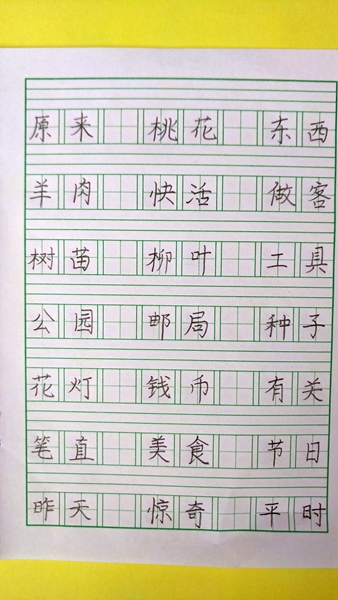 原来 桃花 东西
羊肉 快活 做客
树苗 柳叶 工具
公园 邮局 种子
花灯 钱币 有关
笔直 美食 节日
昨天 惊奇 平时